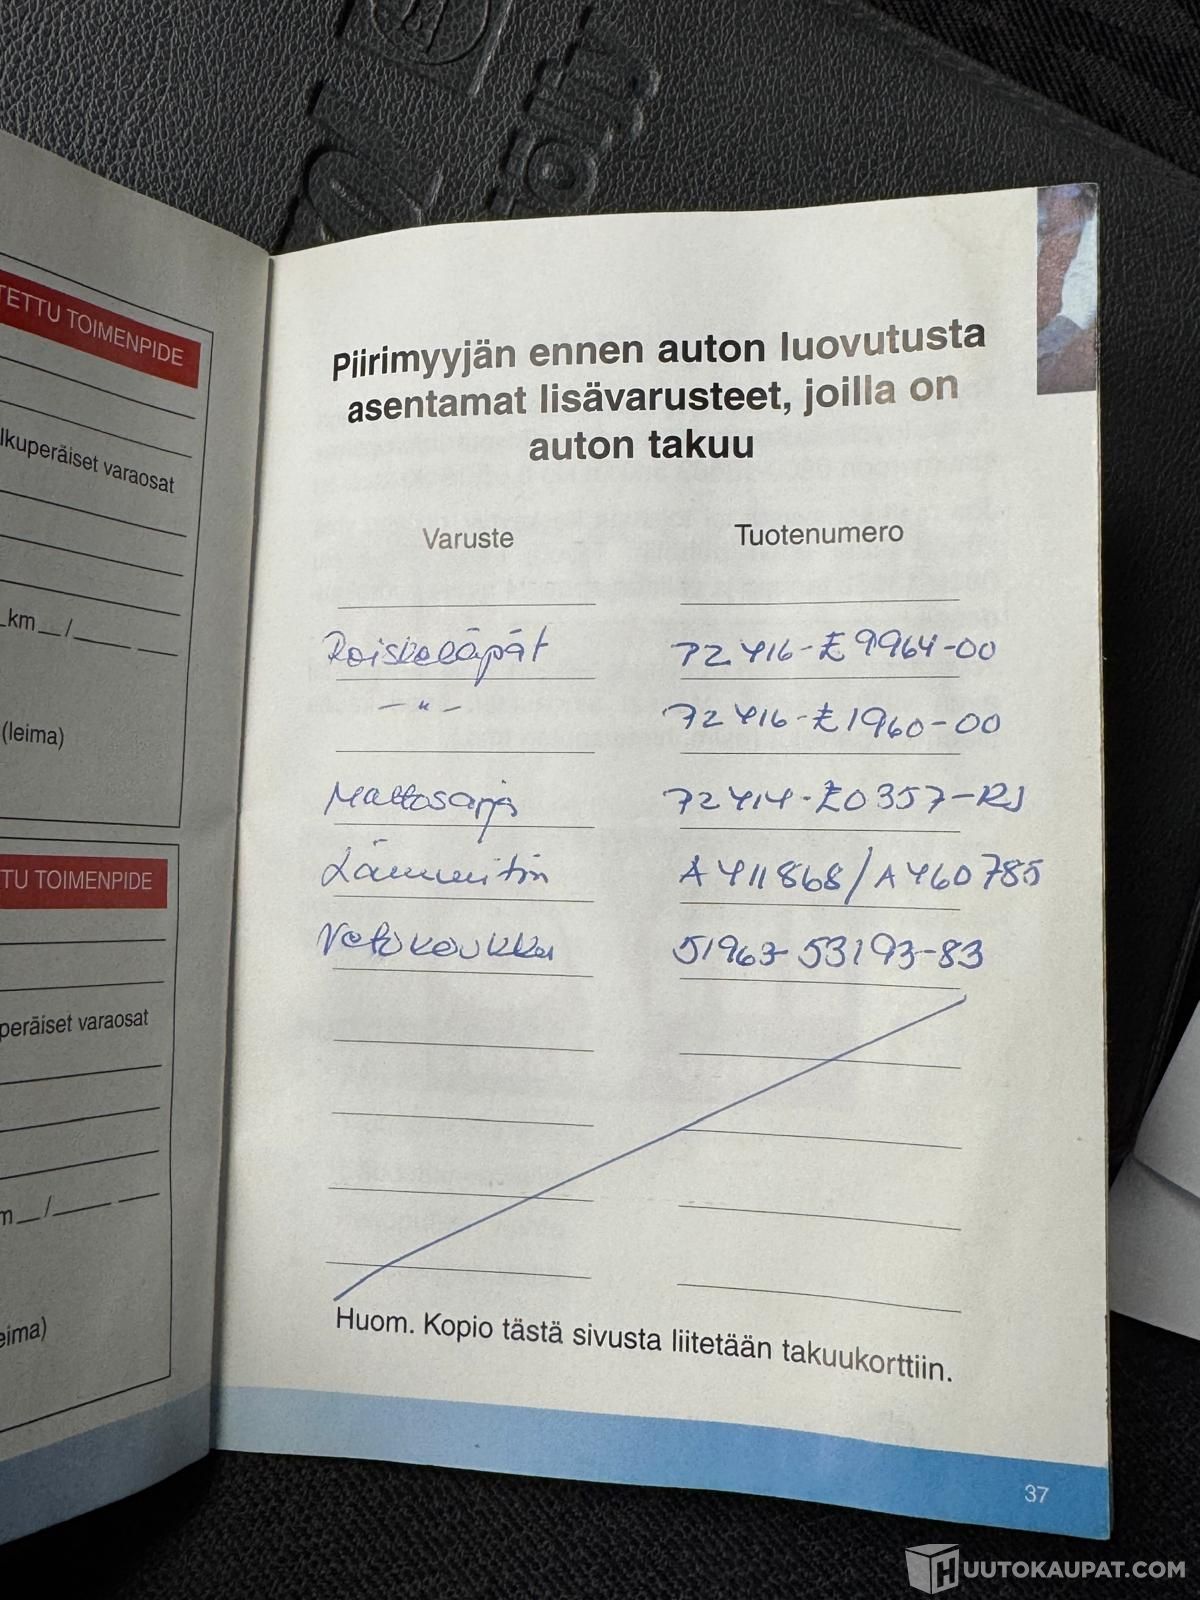 TETTU TOIMENPIDE
lkuperäiset varaosat
km__/____ ___
(leima)
TU TOIMENPIDE
peräiset varaosat
m__/____ ___
eima)
Piirimyyjän ennen auton luovutusta
asentamat lisävarusteet, joilla on
auton takuu
Varuste Tuotenumero
Roiskeläpät 72416-E9964-00
-"- 72416-E1960-00
Mattosarja 72414-E0357-RJ
Lämmitin A411868/A460785
Vetokoukku 51963-53193-83
Huom. Kopio tästä sivusta liitetään takuukorttiin.
37
HUUTOKAUPAT.COM